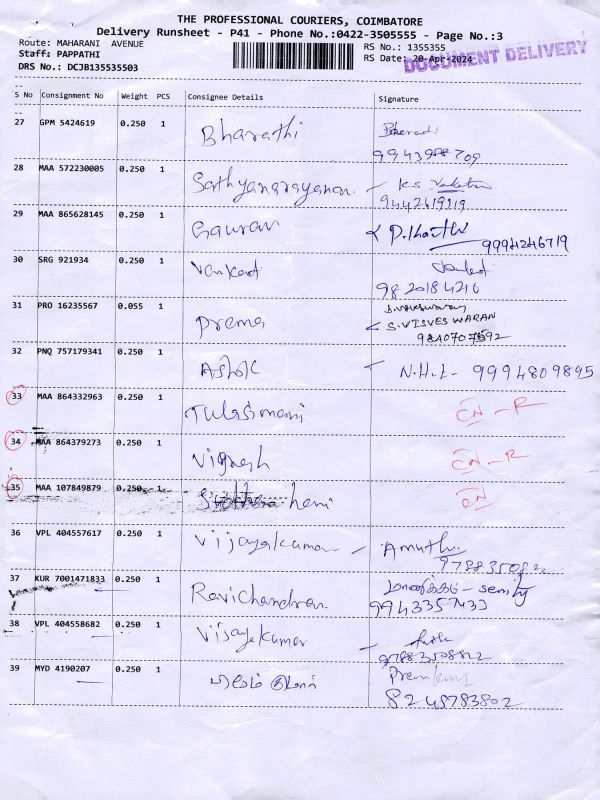 THE PROFESSIONAL COURIERS, COIMBATORE
Delivery Runsheet - P41 - Phone No.:0422-3505555 - Page No.:3
Route: MAHARANI AVENUE
Staff: PAPPATHI
DRS No.: DCJB135535503
RS No.: 1355355
RS Date: 20-Apr-2024
DOCUMENT DELIVERY
S No Consignment No Weight PCS Consignee Details Signature
27 GPM 5424619 0.250 1 Bharathi
9943988709
28 MAA 572230005 0.250 1 Sathyanarayanan - K.S.
9442619119
29 MAA 865628145 0.250 1 Gauran P.Karthi
9994246719
30 SRG 921934 0.250 1 Venkat Venkat
9820184210
31 PRO 16235567 0.055 1 Prema
S.VISVESWARAN
9840707592
32 PNQ 757179341 0.250 1 Ashok - N.H.L- 9994809895
33 MAA 864332963 0.250 1 Tulasimani CN-R
34 MAA 864379273 0.250 1 Vignesh CN-R
35 MAA 107849879 0.250 1 CN
36 VPL 404557617 0.250 1 Vijayakumar - Amutha
37 KUR 7001471833 0.250 1 Ravichandran
9943357433
38 VPL 404558682 0.250 1 Vijayakumar -
39 MYD 4190207 0.250 1 Premkumar
8248783802